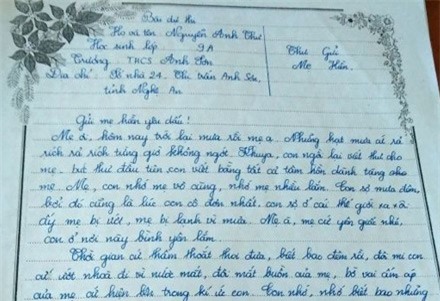 Bài dự thi
Họ và tên: Nguyễn Anh Thư
Học sinh lớp 9A
Trường THCS Anh Sơn
Địa chỉ: Số nhà 24. Thị trấn Anh Sơn,
tỉnh Nghệ An
Thư Gửi
Mẹ Hiền.
Gửi mẹ hiền yêu dấu!
Mẹ ơi, hôm nay trời lại mưa rồi mẹ ạ. Những hạt mưa cứ rả
rích rả rích từng giờ không ngớt. Khuya, con ngồi lại viết thư cho
mẹ, bức thư đầu tiên con viết bằng tất cả tâm hồn dành tặng cho
mẹ. Mẹ, con nhớ mẹ vô cùng, nhớ mẹ nhiều lắm. Con sợ mưa đêm,
bởi đó cũng là lúc con cô đơn nhất, con sợ ở cái thế giới xa xôi
ấy mẹ bị ướt, mẹ bị lạnh vì mưa. Mẹ à, mẹ cứ yên giấc nhé,
con ở nơi này bình yên lắm.
Thời gian cứ thấm thoắt thoi đưa, biết bao đêm rồi, đôi mi con
cứ ướt nhoà đi vì nước mắt, đôi mắt buồn của mẹ, bờ vai ấm áp
của mẹ cứ hiện lên trong kí ức con. Con nhớ, nhớ biết bao những